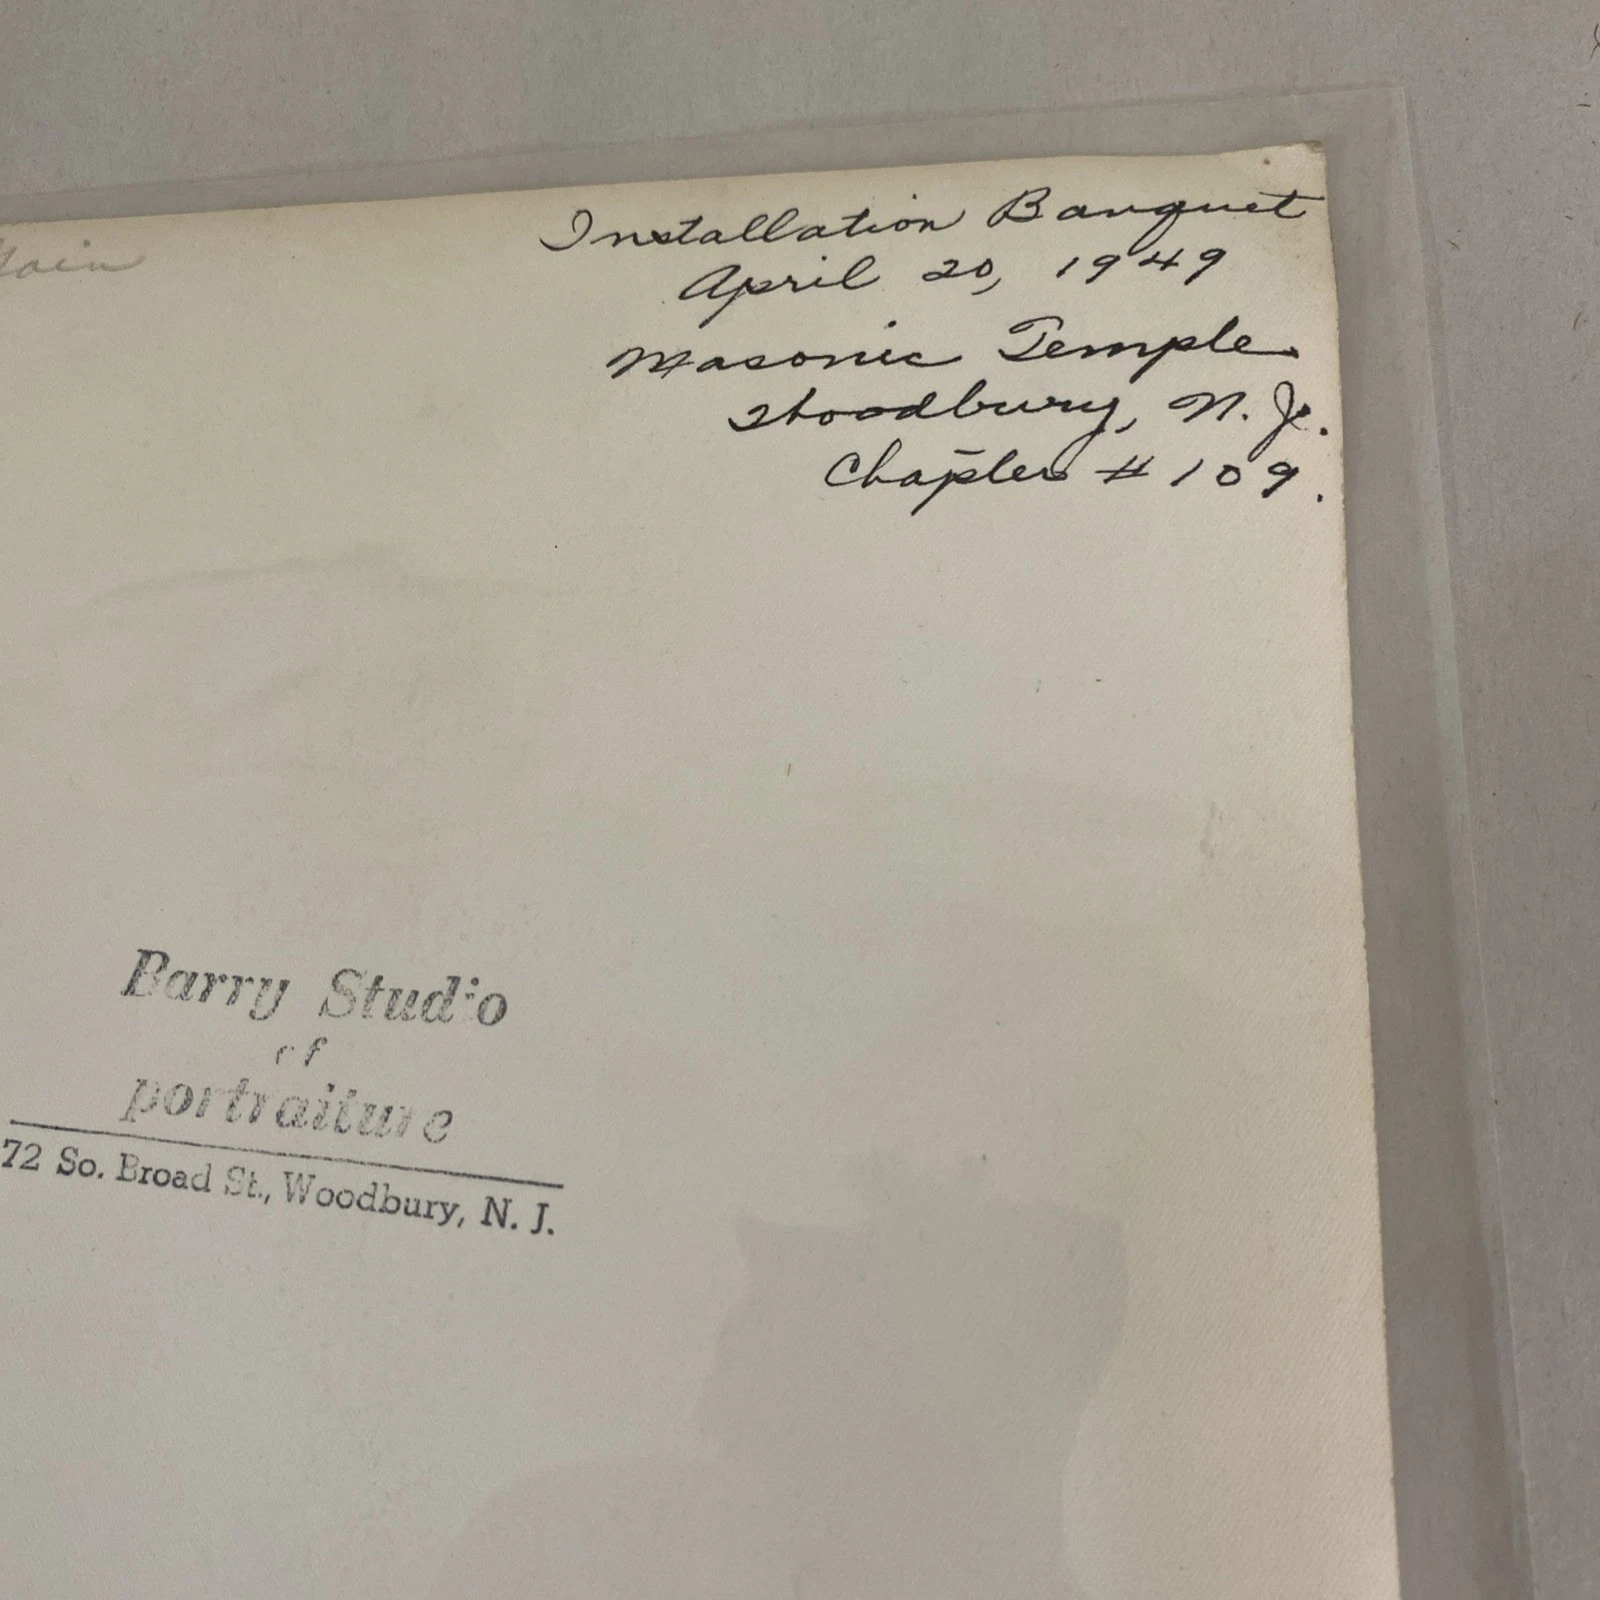 Installation Banquet
April 20, 1949
Masonic Temple
Woodbury, N. J.
Chapter # 109.
Barry Studio
of
portraiture
72 So. Broad St., Woodbury, N. J.